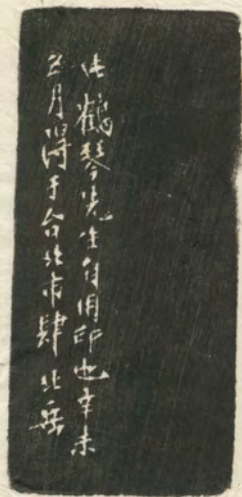 此鶴琴先生自用印也辛未
五月得于台北市肆北岳